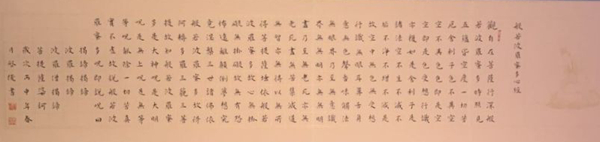 般若波羅蜜多心經
觀自在菩薩行深般
若波羅蜜多時照見
五蘊皆空度一切苦
厄舍利子色不異空
空不異色色即是空
空即是色受想行識
亦復如是舍利子是
諸法空相不生不滅
不垢不淨不增不減
是故空中無色無受想
行識無眼耳鼻舌身
意無色聲香味觸法
無眼界乃至無意識
界無無明亦無無明
盡乃至無老死亦無
老死盡無苦集滅道
無智亦無得以無所
得故菩提薩埵依般若
波羅蜜多故心無罣
礙無罣礙故無有恐
怖遠離顛倒夢想究
竟涅槃三世諸佛依
般若波羅蜜多故得
阿耨多羅三藐三菩
提故知般若波羅蜜
多是大神咒是大明
咒是無上咒是無等
等咒能除一切苦真
實不虛故說般若波
羅蜜多咒即說咒曰
揭諦揭諦
波羅揭諦
波羅僧揭諦
菩提薩婆訶
歲次丙申年春